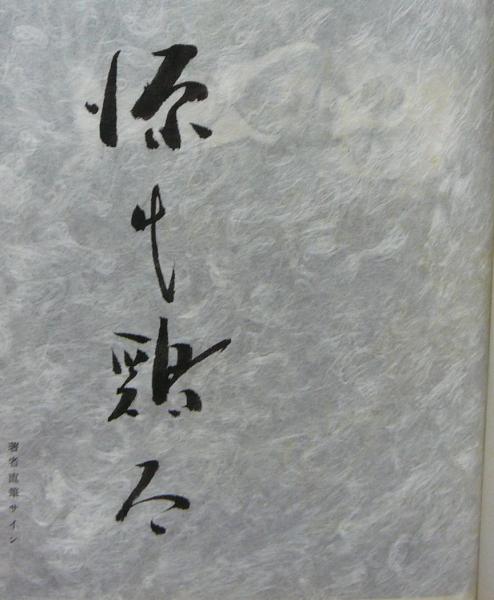 源氏鶏太
著者直筆サイン